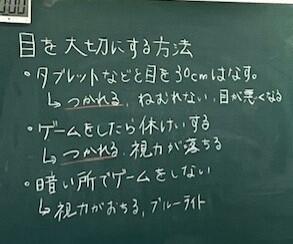 目を大切にする方法
・タブレットなどと目を30cmはなす。
↳つかれる、ねむれない、目が悪くなる
・ゲームをしたら休けいする
↳つかれる、視力が落ちる
・暗い所でゲームをしない
↳視力がおちる、ブルーライト